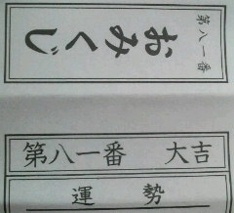 第八一番
おみくじ
第八一番 大吉
運勢